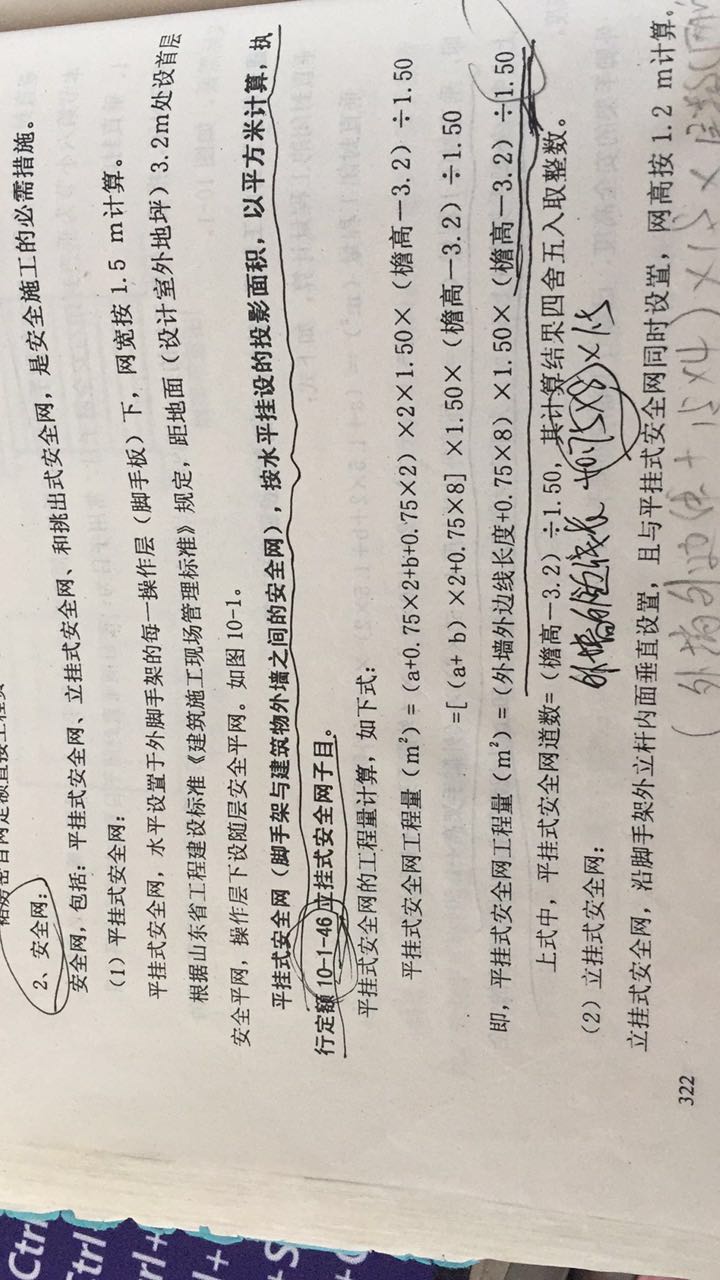 2、安全网:
安全网，包括：平挂式安全网、立挂式安全网、和挑出式安全网，是安全施工的必需措施。
（1）平挂式安全网:
平挂式安全网，水平设置于外脚手架的每一操作层（脚手板）下，网宽按 1.5 m计算。
根据山东省工程建设标准《建筑施工现场管理标准》规定，距地面（设计室外地坪）3.2m处设首层
安全平网，操作层下设随层安全平网。如图 10-1。
平挂式安全网（脚手架与建筑物外墙之间的安全网），按水平挂设的投影面积，以平方米计算，执
行定额 10-1-46 立挂式安全网子目。
平挂式安全网的工程量计算，如下式：
平挂式安全网工程量（m²）＝（a+0.75×2+b+0.75×2）×2×1.50×（檐高－3.2）÷1.50
=[（a+ b）×2+0.75×8] ×1.50×（檐高－3.2）÷1.50
即，平挂式安全网工程量（m²）＝（外墙外边线长度+0.75×8）×1.50×（檐高－3.2）÷1.50
上式中，平挂式安全网道数=（檐高－3.2）÷1.50，其计算结果四舍五入取整数。
外墙外边线长 +0.75×8)×1.5
（2）立挂式安全网:
立挂式安全网，沿脚手架外立杆内面垂直设置，且与平挂式安全网同时设置，网高按 1.2 m计算。
(外墙外边线+1.5×4)×1.5×
322
Ctrl
Ctrl
Ctrl+